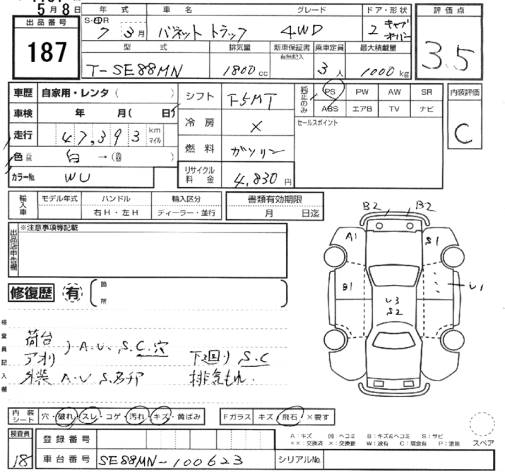 5月8日
出品番号
187
年式
車名
グレード
ドア・形状
評価点
S・H・R
7 3月
バネット トラック
4WD
2 キャブオーバー
3.5
型式
排気量
新車保証書
有無記入
乗車定員
最大積載量
T-SE88MN
1800cc
3人
1000kg
車歴 自家用・レンタ( )
車検 年 月( 日)
走行 47,393 km マイル
色 白 →( )
カラーNo. WU
シフト F5MT
冷房 ×
燃料 ガソリン
リサイクル料金 4,830円
純正のみ
PS PW AW SR
ABS エアB TV ナビ
セールスポイント
内装評価
C
輸入車
モデル年式 ハンドル 輸入区分
右H・左H ディーラー・並行
書類有効期限
月 日迄
出品店申告欄
※注意事項等記載
修復歴 有
箇所
検査員記入欄
荷台
アオリ
A.U.S.C.穴
外装 A.U.S.
下廻り S.C
排気もれ
B2 B2
A1 S1
B1
U3
S2
U1
内装シート
穴・破れ・スレ・コゲ・汚れ・キズ・黄ばみ
Fガラス キズ・飛石・×要す
A:キズ 凹:ヘコミ B:キズ&ヘコミ S:サビ
××:交換済 ×:交換要 W:波有 C:腐食有 P:塗装
スペア
検査員
18
登録番号
車台番号 SE88MN-100623
シリアルNo.